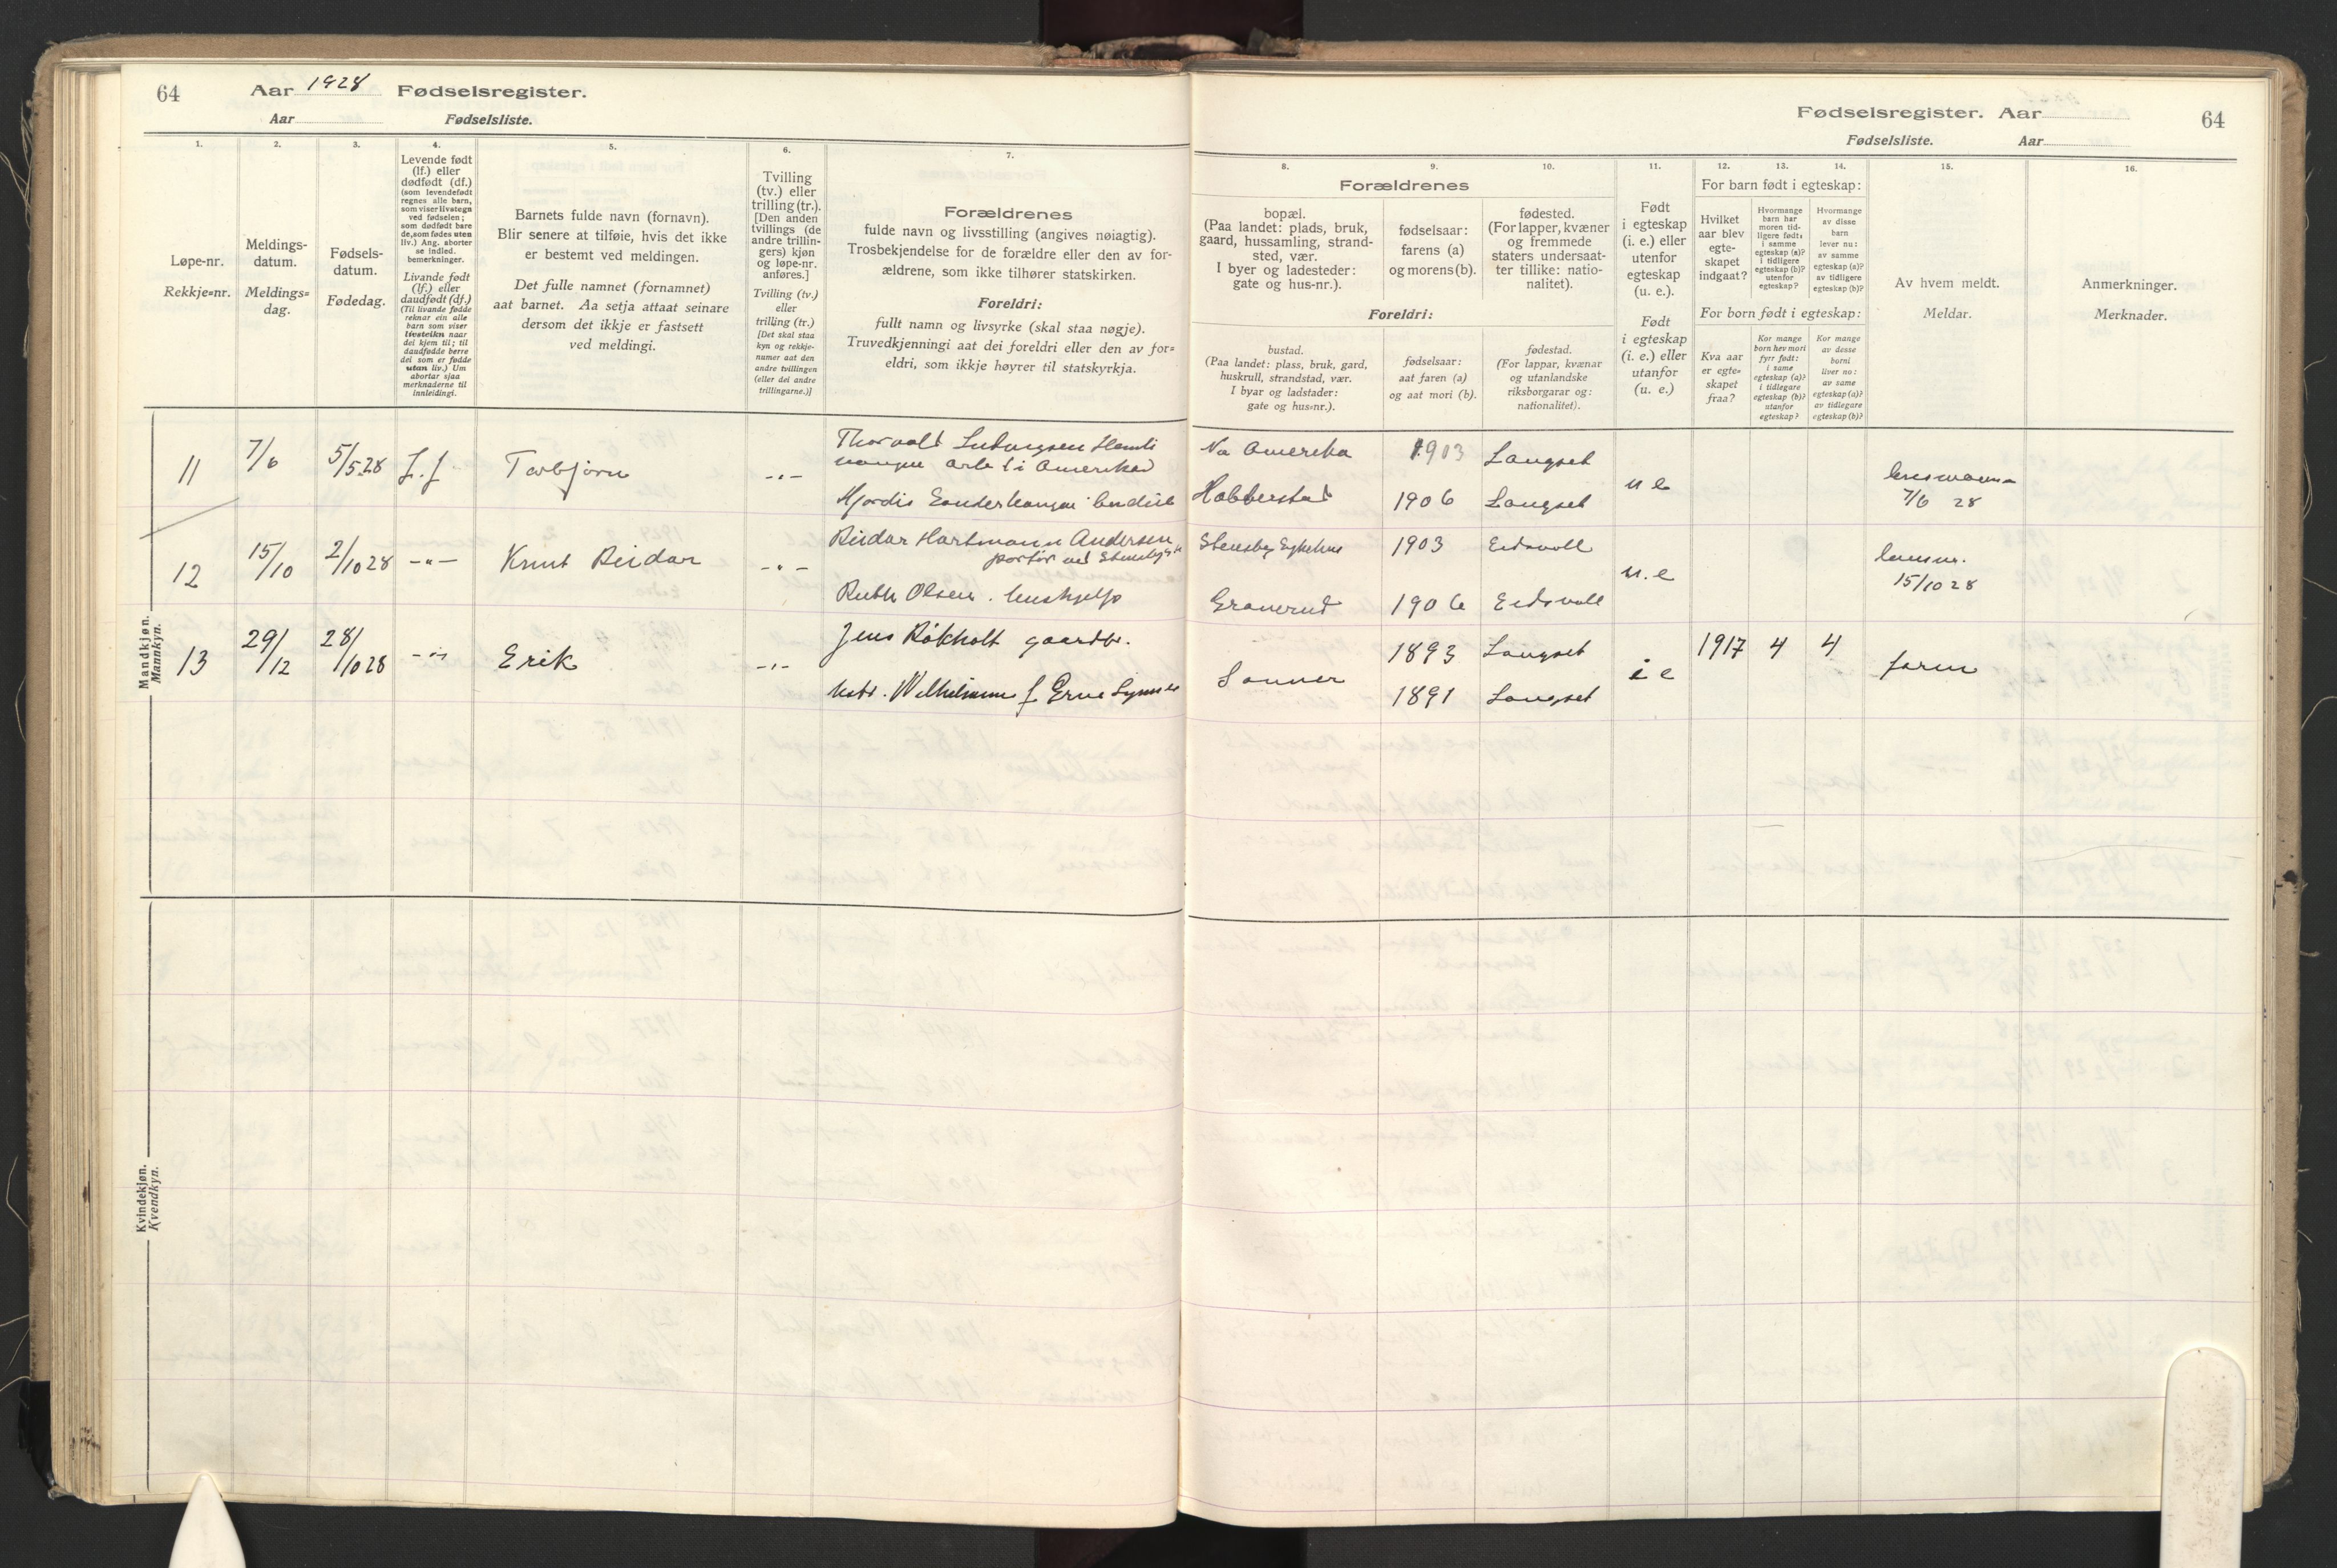 64
Aar 1928 Fødselsregister.
Aar Fødselsliste.
Fødselsregister. Aar
64
Fødselsliste. Aar
1.
Løpe-nr.
Rekkje=nr.
2.
Meldings-
datum.
Meldings=
dag.
3.
Fødsels-
datum.
Fødedag.
4.
Levende født
(lf.) eller
dødfødt (df.)
(som levendefødt
regnes alle barn,
som viser livstegn
ved fødselen;
som dødfødt bare
de, som fødes uten
liv.) Ang. aborter
se indled.
bemerkninger.
Livande født
(lf.) eller
daudfødt (df.)
(Til livande fødde
reknar ein alle
barn som viser
livsteikn naar
dei kjem til; til
daudfødde berre
dei som er fødde
utan liv.) Um
abortar sjaa
merknaderne til
innleidingi.
5.
Barnets fulde navn (fornavn).
Blir senere at tilføie, hvis det ikke
er bestemt ved meldingen.
Det fulle namnet (fornamnet)
aat barnet. Aa setja attaat seinare
dersom det ikkje er fastsett
ved meldingi.
6.
Tvilling
(tv.) eller
trilling (tr.).
[Den anden
tvillings (de
andre trillin-
gers) kjøn
og løpe-nr.
anføres.]
Tvilling (tv.)
eller
trilling (tr.)
[Det skal staa
kyn og rekkje-
numer aat den
andre tvillingen
(eller dei andre
trillingarne.)]
7.
Forældrenes
fulde navn og livsstilling (angives nøiagtig).
Trosbekjendelse for de forældre eller den av for-
ældrene, som ikke tilhører statskirken.
Foreldri:
fullt namn og livsyrke (skal staa nøgje).
Truvedkjenningi aat dei foreldri eller den av for=
eldri, som ikkje høyrer til statskyrkja.
8.
9.
10.
Forældrenes
bopæl.
(Paa landet: plads, bruk,
gaard, hussamling, strand-
sted, vær.
I byer og ladesteder:
gate og hus-nr.).
fødselsaar:
farens (a)
og morens (b).
fødested.
(For lapper, kvæner
og fremmede
staters undersaat-
ter tillike: natio-
nalitet).
Foreldri:
bustad.
(Paa landet: plass, bruk, gard,
huskrull, strandstad, vær.
I byar og ladstader:
gate og hus=nr.).
fødselsaar:
aat faren (a)
og aat mori (b).
fødestad.
(For lappar, kvænar
og utanlandske
riksborgarar og:
nationalitet).
11.
Født
i egteskap
(i. e.) eller
utenfor
egteskap
(u. e.).
Født
i egteskap
(i. e.) eller
utanfor
(u. e.)
12.
13.
14.
For barn født i egteskap:
Hvilket
aar blev
egte-
skapet
indgaat?
Hvormange
barn har
moren tid-
ligere født:
i samme
egteskap (a)?
i tidligere
egteskap (b)?
utenfor
egteskap?
Hvormange
av disse
barn
lever nu:
av samme
egteskap (a)?
av tidligere
egteskap (b)?
For born født i egteskap:
Kva aar
er egte=
skapet
fraa?
Kor mange
born hev mori
fyrr født:
i same
egteskap (a)?
i tidlegare
egteskap (b)?
utanfor
egteskap?
Kor mange
av desse
borni
liver no:
av same
egteskap (a)?
av tidlegare
egteskap (b)?
15.
Av hvem meldt.
Meldar.
16.
Anmerkninger.
Merknader.
Mandkjøn.
Mannkyn.
11 7/6 5/5 28 L.f Torbjørn -"- Thorvalt Ludvigsen
i Amerika
No Amerika 1903 Langset
Hjørdis
1906 Langset
u e
7/6 28
12 15/10 2/10 28 -"- Knut Reidar -"- Reidar Hartmann Andersen
portør ved
Stensby Sykehus 1903 Eidsvoll
Ruth Olsen. hushjelp
Granerud 1906 Eidsvoll
u.e
15/10 28
13 29/12 28/10 28 -"- Erik -"- Jens Røkholt gaardbr.
1893 Langset
Wilhelmine f
Sonner
1891 Langset
i e 1917 4 4 faren
Kvindekjøn.
Kvendkyn.